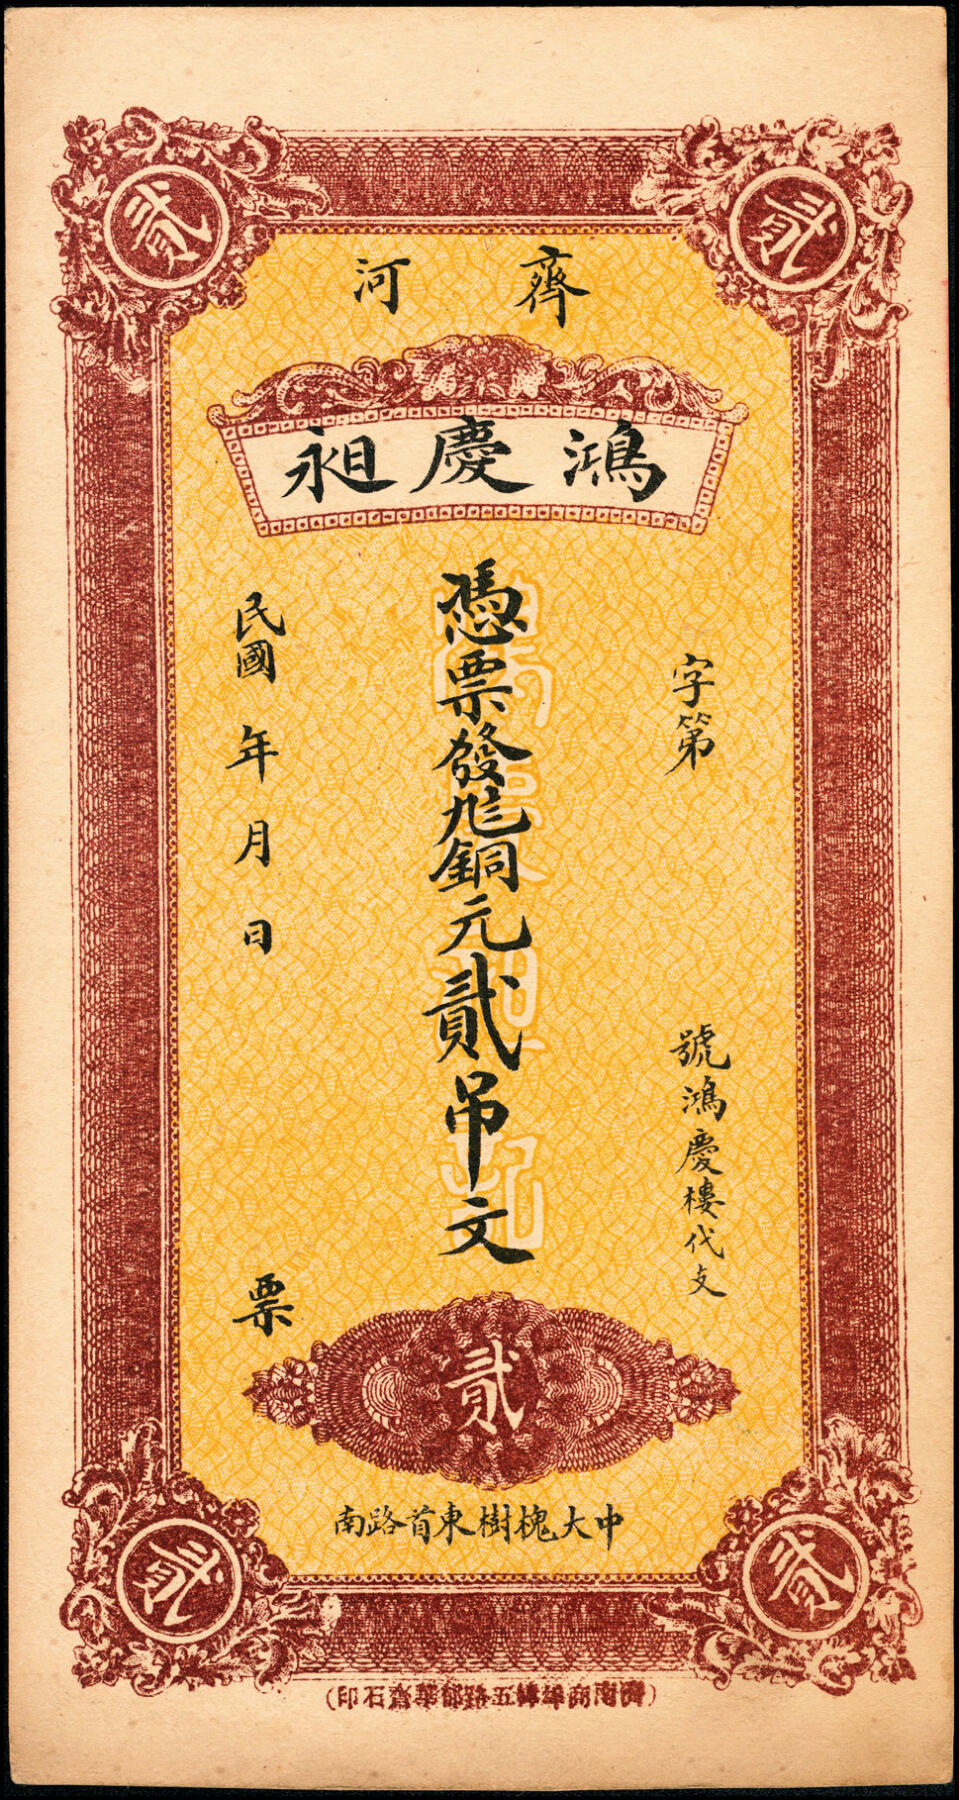 貳
貳
齊河
鴻慶昶
字第
號鴻慶樓代支
憑票發銅元貳吊文
民國
年
月
日
票
貳
中大槐樹東首路南
貳
貳
(濟南商埠緯五路華齋石印)